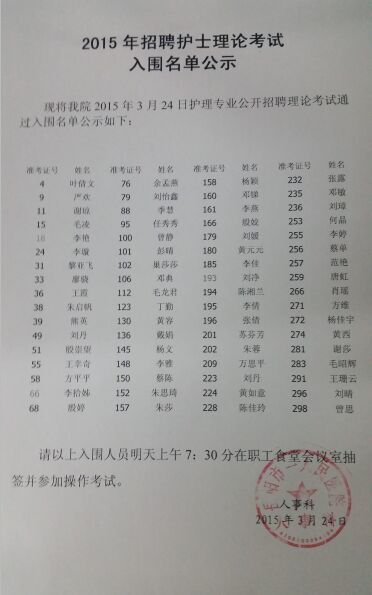 2015 年招聘护士理论考试
入围名单公示
现将我院 2015 年 3 月 24 日护理专业公开招聘理论考试通
过入围名单公示如下：
准考证号 姓名 准考证号 姓名 准考证号 姓名 准考证号 姓名
4 叶倩文 76 余孟燕 158 杨颖 232 张露
9 严欢 79 刘怡鑫 160 邓娣 235 邓敏
11 谢琼 88 李慧 161 李燕 236 刘琼
15 毛凌 95 任秀秀 166 殷姣 253 何晶
18 李艳 100 曾静 179 刘媛 255 李婷
24 李璇 101 彭晴 180 黄元元 256 蔡单
31 黎亚飞 102 巢莎莎 185 李佳 257 范艳
33 廖骁 106 邓典 193 刘净 259 唐虹
36 王霞 112 毛龙君 194 陈湘兰 266 肖瑶
38 朱启帆 123 丁勤 195 李倩 271 方维
39 熊英 130 黄容 196 张倩 272 杨佳宇
49 刘丹 136 戴娟 201 苏芬芳 274 黄西
51 殷崇望 145 杨文 202 朱蓉 281 谢莎
55 王幸奇 148 李雅 209 万思平 283 毛昭辉
58 方平平 150 蔡陈 223 刘丹 291 王珊云
66 李拾姊 152 朱思琦 224 黄如意 296 刘晴
68 殷婷 157 朱莎 228 陈佳玲 298 曾思
请以上入围人员明天上午 7：30 分在职工食堂会议室抽
签并参加操作考试。
人事科
2015 年 3 月 24 日